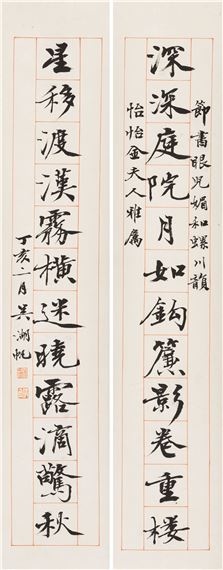 節書眼兒媚和螺川韻
深深庭院月如鈎簾影卷重楼
怡怡金夫人雅属
星移渡漢霧橫迷曉露滴驚秋
丁亥二月吴湖帆